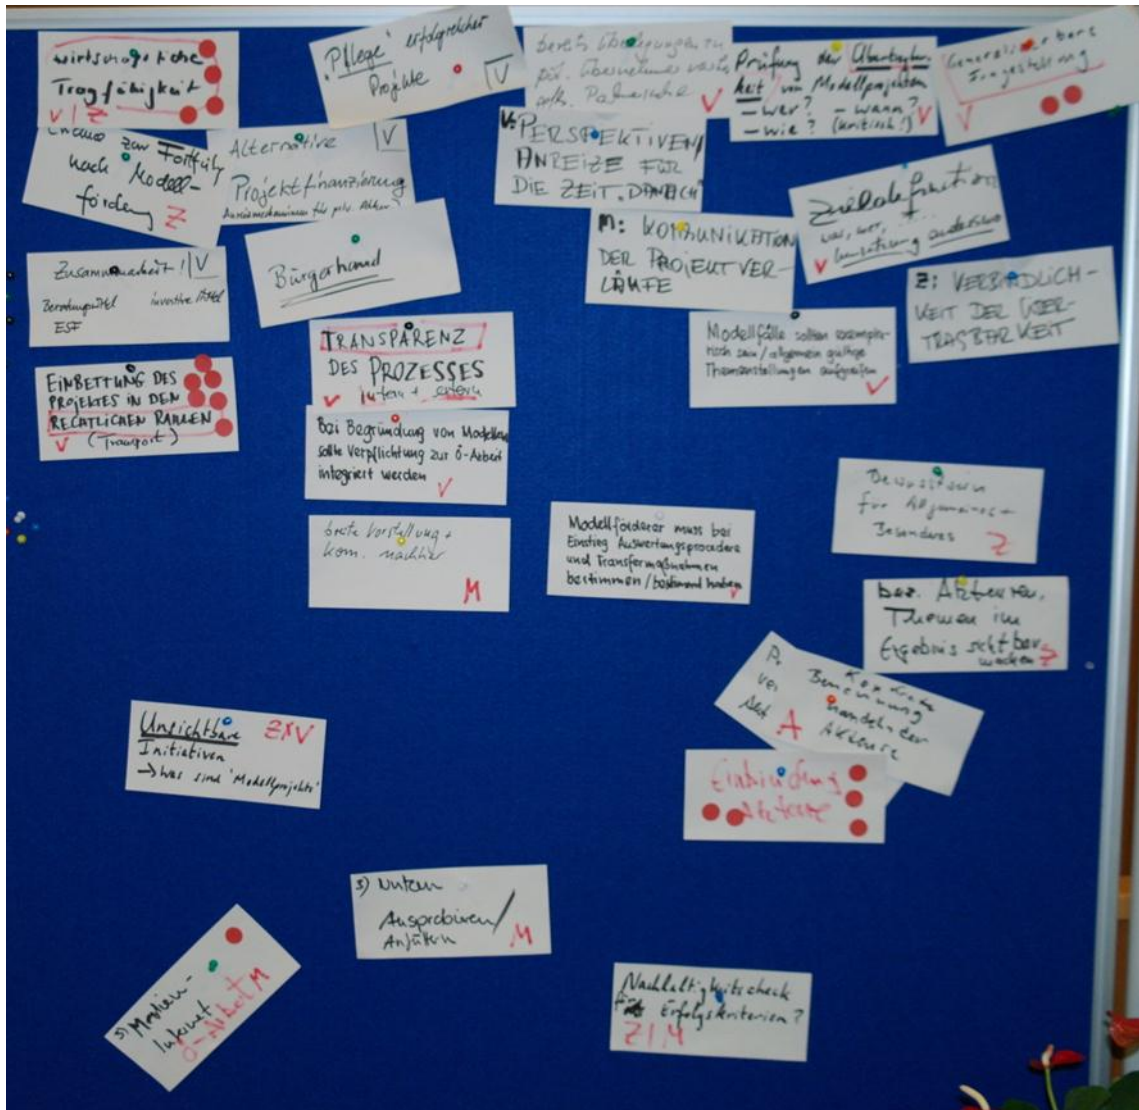 wirtschaftliche
Tragfähigkeit
V / Z
"Pflege" erfolgreicher
Projekte
V
bereits Überlegungen zu
V
Prüfung der Übertragbar-
keit von Modellprojekten
- wer? - wann?
- wie? (kritisch!)
V
Generalisierbare
Fragestellung
V
zur Fortführ
nach Modell-
förderg
Z
Alternative
V
Projektfinanzierung
V: PERSPEKTIVEN/
ANREIZE FÜR
DIE ZEIT „DANACH"
Zieldefinition
was, wer, ...
Umsetzung anderswo
V
Bürgerhand
M: KOMMUNIKATION
DER PROJEKTVER-
LÄUFE
Zusammenarbeit! V
investive Mittel
ESF
Z: VERBINDLICH-
KEIT DER ÜBER-
TRAGBARKEIT
TRANSPARENZ
DES PROZESSES
intern + extern
V
Modellfälle sollten exempla-
risch sein / allgemein gültige
Themenstellungen aufgreifen
V
EINBETTUNG DES
PROJEKTES IN DEN
RECHTLICHEN RAHMEN
(Transport)
V
Bei Begründung von Modellen
sollte Verpflichtung zur Ö-Arbeit
integriert werden
V
Bewusstsein
für Allgemeines +
Besonderes
Z
breite Vorstellung +
Kom. nachher
M
Modellförderer muss bei
Einstieg Auswertungsprocedere
und Transfermaßnahmen
bestimmen / bestimmt haben
V
bez. Akteuren,
Themen im
Ergebnis sichtbar
machen
Z
Konkrete
Benennung
handelnder
Akteure
A
Unsichtbare
Z/V
Initiativen
→ Was sind 'Modellprojekte'
Einbindung
Akteure
3) Nutzen
Ausprobieren/
Anfüttern
M
5) Medien-
Internet
Ö-Arbeit M
Nachhaltigkeitscheck
für Erfolgskriterien?
Z / M